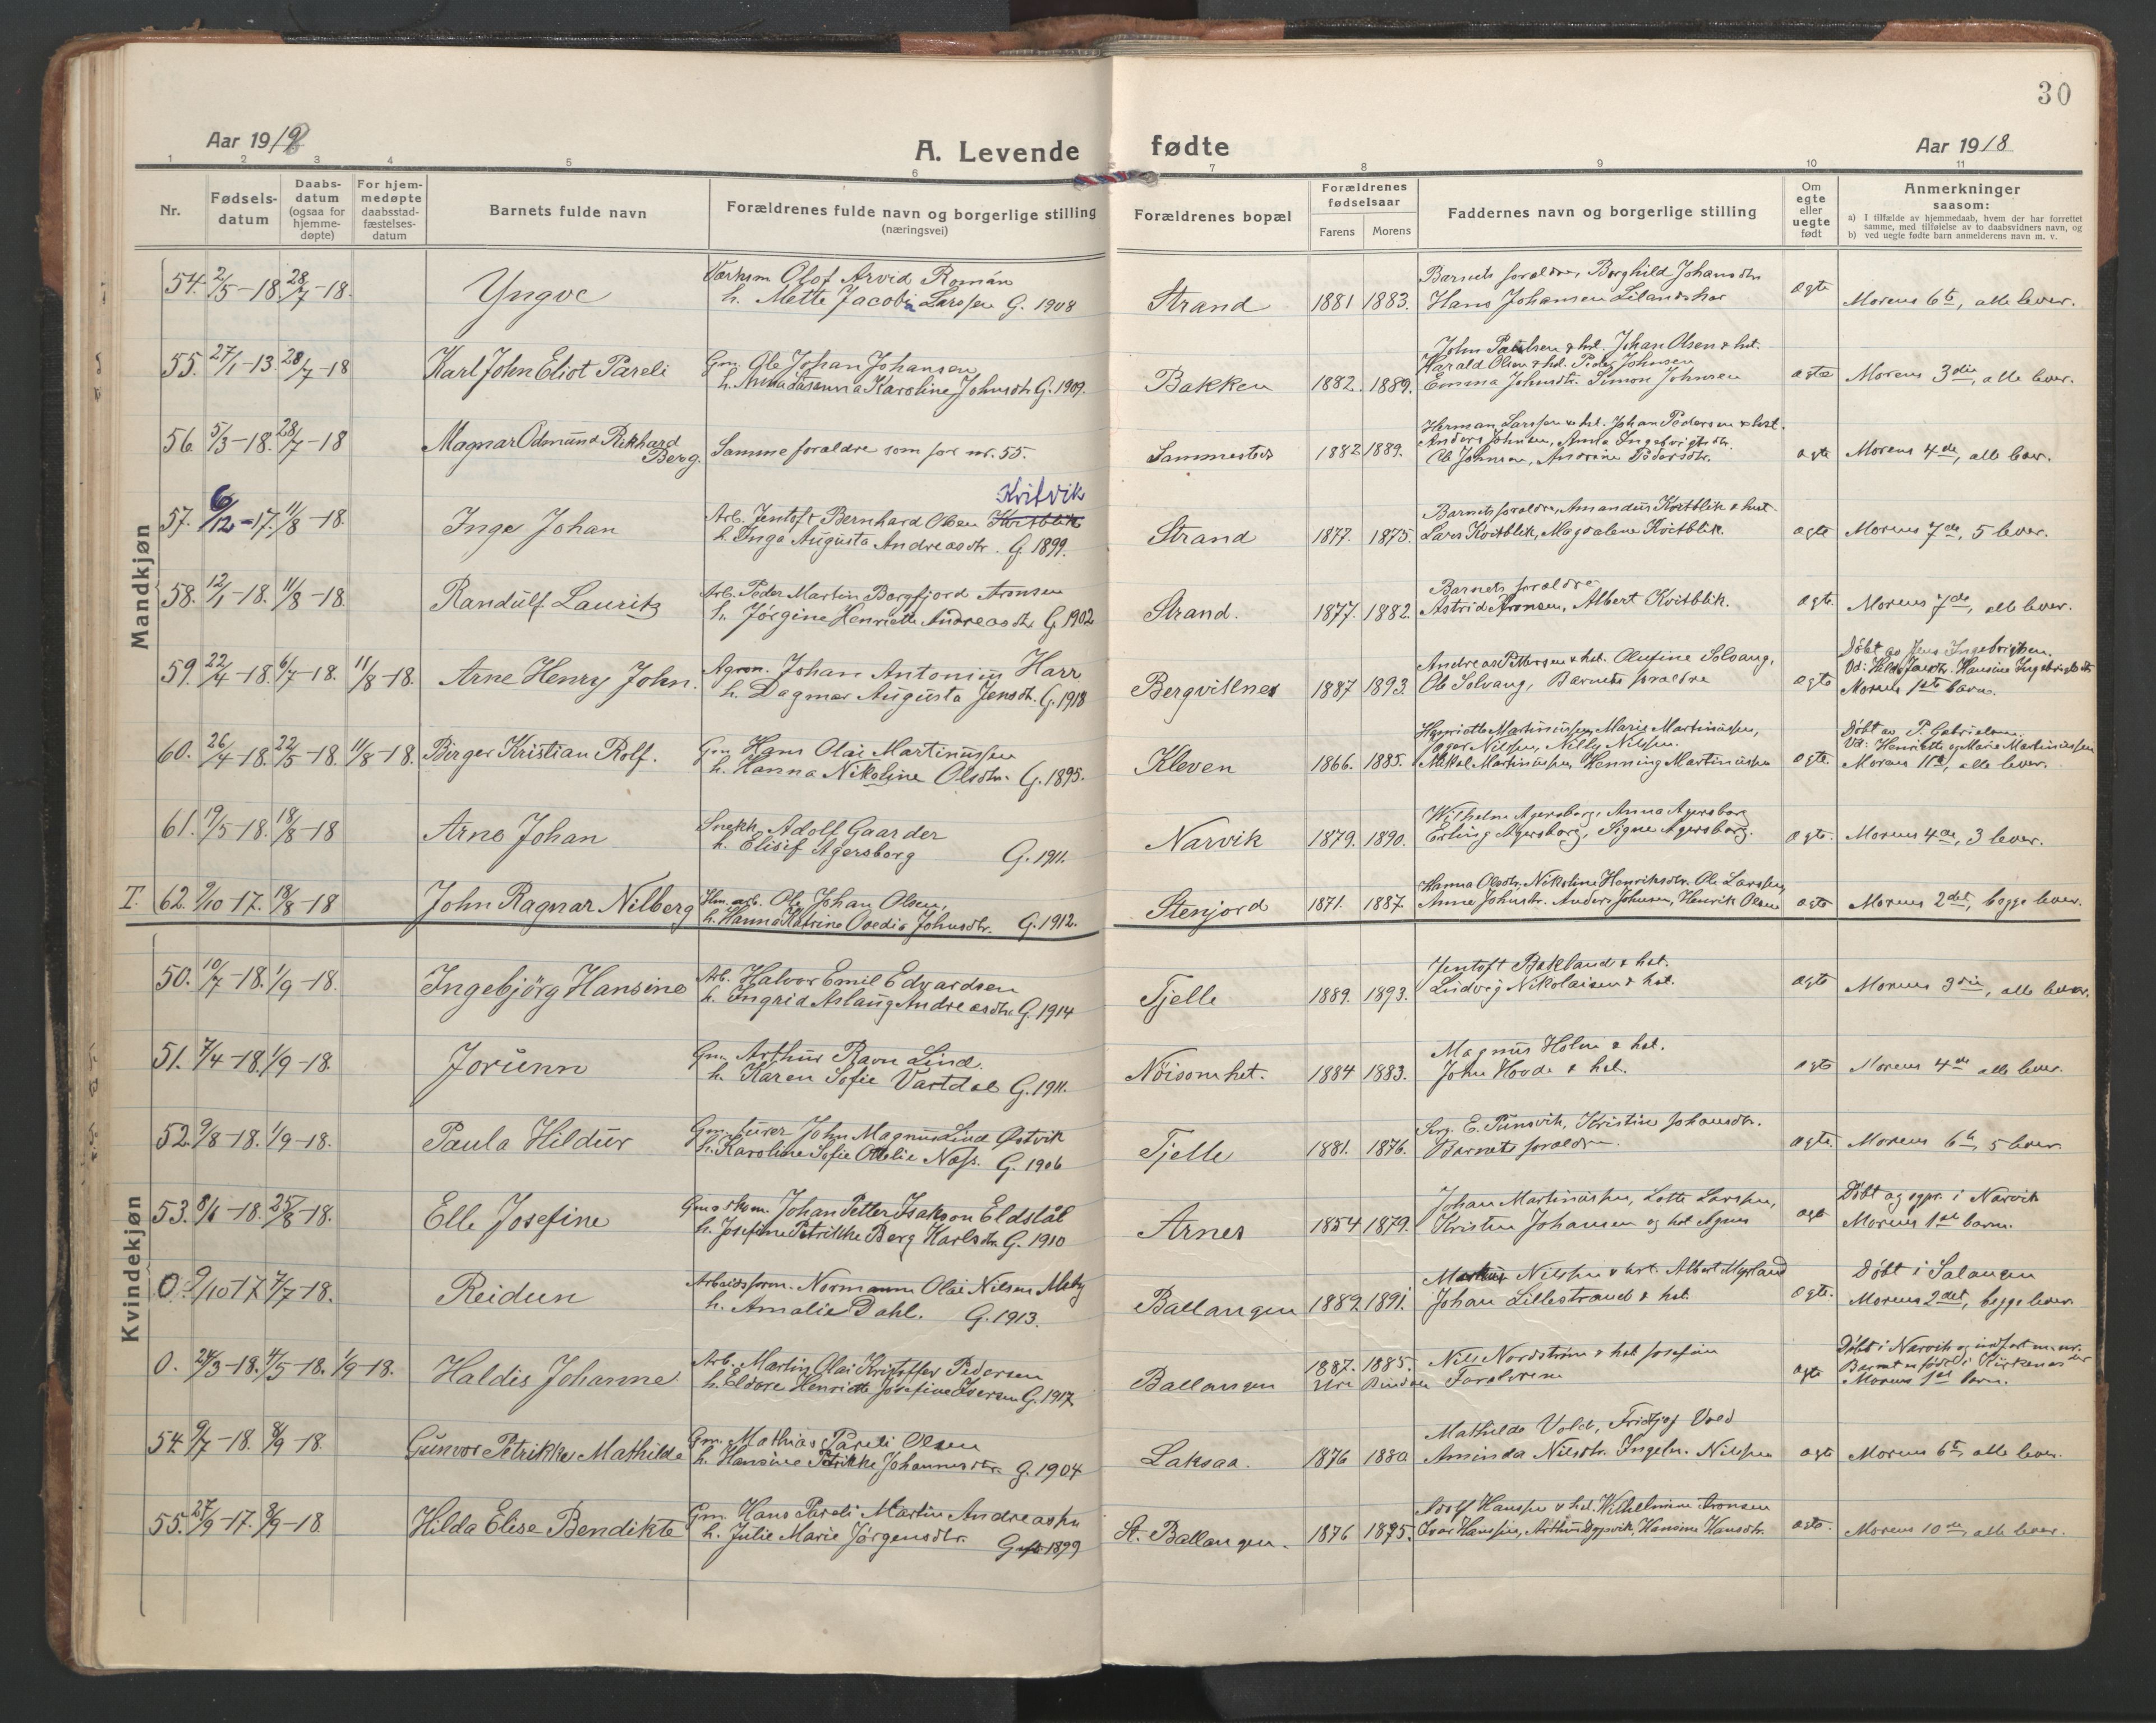 30
Aar 1918
A. Levende fødte
Aar 1918
1 2 3 4 5 6 7 8 9 10 11
Nr.
Fødsels-
datum
Daabs-
datum
(ogsaa for
hjemme-
døpte)
For hjem-
medøpte
daabsstad-
fæstelses-
datum
Barnets fulde navn
Forældrenes fulde navn og borgerlige stilling
(næringsvei)
Forældrenes bopæl
Forældrenes
fødselsaar
Farens Morens
Faddernes navn og borgerlige stilling
Om
egte
eller
uegte
født
Anmerkninger
saasom:
a) I tilfælde av hjemmedaab, hvem der har forrettet
samme, med tilføielse av to daabsvidners navn, og
b) ved uegte fødte barn anmelderens navn m. v.
Mandkjøn
54. 2/5-18. 28/7-18. Yngve
Olof Arvid Román
h. Mette Jacobin Larssen G. 1908
Strand 1881 1883.
Barnets forældre, Borghild Johansdtr
Hans Johansen Lilandskar
egte Morens 6te, alle lever.
55. 27/1-13 28/7-18 Karl John Eliot Pareli
Gm. Ole Johan Johansen
h. Karoline Johnsdtr G. 1909.
Bakken 1882. 1889.
John Paulsen & hst. Johan Olsen & hst.
Harald Olsen & hst. Peder Johnsen
Emma Johnsdtr. Simon Johnsen
egte Morens 3die, alle lever.
56. 5/3-18. 28/7-18 Magnar Odmund Rikhard
Berg.
Samme forældre som for nr. 55.
Sammesteds 1882 1889.
Herman Larssen & hst. Johan Pedersen & hst.
Anders Johnsen, Anna Ingebrigtsdtr.
Ole Johnsen, Andrine Pedersdtr.
egte Morens 4de, alle lever.
57. 6/12-17. 11/8-18. Inge Johan
Kvitvik
Arb. Jentoft Bernhard Olsen Kvitblik
h. Inga Augusta Andreasdtr. G. 1899.
Strand 1877. 1875.
Barnets forældre, Amandus Kvitblik & hust.
Lars Kvitblik, Magdalene Kvitblik.
egte Morens 7de, 5 lever.
58. 12/1-18. 11/8-18. Randulf Lauritz
Arb. Peder Martin Borgfjord Aronsen
h. Jørgine Henriette Andreasdtr G. 1902
Strand. 1877. 1882.
Barnets forældre
Astrid Aronsen, Albert Kvitblik.
egte. Morens 7de, alle lever.
59. 22/4-18. 6/7-18. 11/8-18. Arne Henry John.
Agron. Johan Antonius Harr
h. Dagmar Augusta Jensdtr. G. 1918
Bergvillnes 1887 1893.
Andreas Pettersen & hst. Olufine Solvang,
Ole Solvang, Barnets forældre
egte
Døbt av Jens Ingebrigtsen.
Vd: Hilda Jensdtr. Hansine Ingebrigtsdtr
Morens 1ste barn.
60. 26/4-18. 22/5-18. 11/8-18. Birger Kristian Rolf.
Gm. Hans Olai Martinussen
h. Hanna Nikoline Olsdtr. G. 1895.
Kleven 1866. 1885.
Henriette Martinussen, Marie Martinussen,
Nilsen, Nilly Nilsen.
Mikal Martinussen, Henning Martinussen
egte.
Døbt av P. Gabrielsen.
Vd: Henriette og Marie Martinussen
Morens 11te, alle lever.
61. 19/5-18. 18/8-18 Arne Johan
Snekk. Adolf Gaarder
h. Elisif Agersborg G. 1911.
Narvik 1879. 1890.
Wilhelm Agersborg, Anna Agersborg
Erling Agersborg, Signe Agersborg.
egte. Morens 4de, 3 lever.
T. 62. 9/10-17. 18/8-18 John Ragnar Nilberg
arb. Ole Johan Olsen,
h. Hanna Katrine Ovedia Johnsdtr. G. 1912.
Stenjord 1871. 1887.
Hanna Olsdtr. Nikoline Henriksdtr. Ole Larssen,
Anne Johnsdtr. Anders Johnsen, Henrik Olsen
egte Morens 2det, begge lever.
Kvindekjøn
50. 10/7-18. 1/9-18. Ingebjörg Hansine
Arb. Halvor Emil Edvardsen
h. Ingrid Aslaug Andreasdtr. G. 1914
Tjelle 1889. 1893.
Jentoft Bakland & hst.
Ludvig Nikolaisen & hst.
egte Morens 3die, alle lever.
51. 7/4-18. 1/9-18. Jorunn
Gm. Arthur Ravn Lind.
h. Karen Sofie Vartdal G. 1911.
Nöisomhet. 1884 1883.
Magnus Holm & hst.
John Hovde & hst.
egte Morens 4de alle lever.
52. 9/8-18. 1/9-18. Paula Hildur
John Magnus Lind Østvik
h. Karoline Sofie Otelie Næss. G. 1906
Tjelle 1881. 1876.
E. Punsvik, Kristine Johansdtr.
Barnets forældre
egte. Morens 6te, 5 lever.
53. 8/6-18. 25/8-18. Elle Josefine
Johan Petter Isakson Eldstål
h. Josefine Petrikke Berg Karlsdtr. G. 1910
Arnes 1854 1879.
Johan Martinussen, Lotte Larssen,
Kristen Johansen og hst. Agnes
egte
Døbt og egpr. i Narvik
Morens 1ste barn.
0. 9/10-17 7/7-18. Reidun
Arbeidsform. Normann Olai Nilsen Meby
h. Amalie Dahl. G. 1913.
Ballangen 1882 1891.
Markus Nilssen & hst. Albert Myrland
Johan Lillestrand & hst.
egte.
Døbt i Salangen
Morens 2det, begge lever.
0. 24/3-18. 4/5-18. 1/9-18. Haldis Johanne
Arb. Martin Olai Kristoffer Pedersen
h. Eldore Henriette Josefine Iversen G. 1917
Ballangen 1887. 1885.
Bindal
Nils Nordström & hst. Josefine
Forældrene
egte
Døbt i Narvik og indført m. nr.
Barnet er født i Kirkenes
Morens 1ste barn.
54. 9/7-18. 8/9-18. Gunvor Petrikke Mathilde
Gm. Mathias Pareli Olsen
h. Hansine Petrikke Johannesdtr. G. 1904
Laksaa. 1876 1880
Mathilde Vold, Fridtjof Vold
Aminda Nilsdtr. Ingebr. Nilssen
egte Morens 6te, alle lever.
55. 27/9-17. 8/9-18. Hilda Elise Bendikte
Gm. Hans Pareli Martin Andreassen
h. Julie Marie Jørgensdtr. Gift 1899
St. Ballangen. 1876 1875.
Adolf Hanssen & hst. Wilhelmine Aronsen
Ivar Hanssen, Arthur Dypvik, Hansine Hansdtr.
egte. Morens 10de, alle lever.